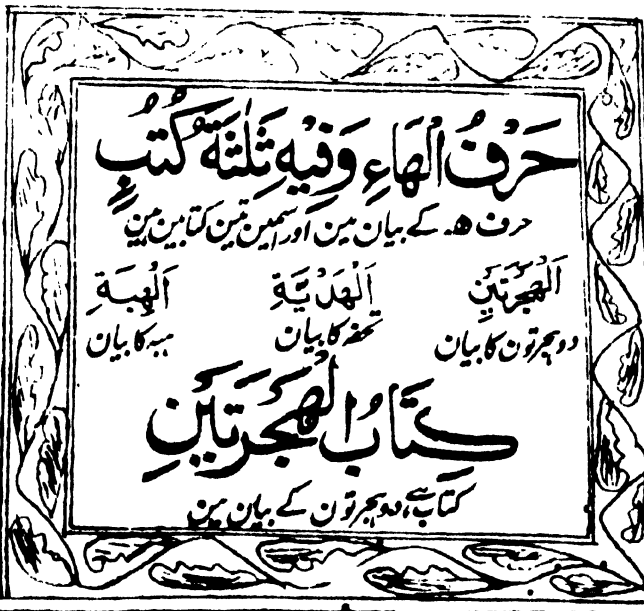 حَرْفُ الْهَاءِ وَفِيهِ ثَلٰثَةُ كُتُبٍ
حرف ھ کے بیان مین اور اسمین تین کتابین ہین
اَلْهِجْرَتَيْنِ اَلْهَدْيَّةِ اَلْهِبَةِ
دو ہجرتون کا بیان تحفہ کا بیان ہبہ کا بیان
كِتَابُ الْهِجْرَتَيْنِ
کتاب ہے، دو ہجرتون کے بیان مین